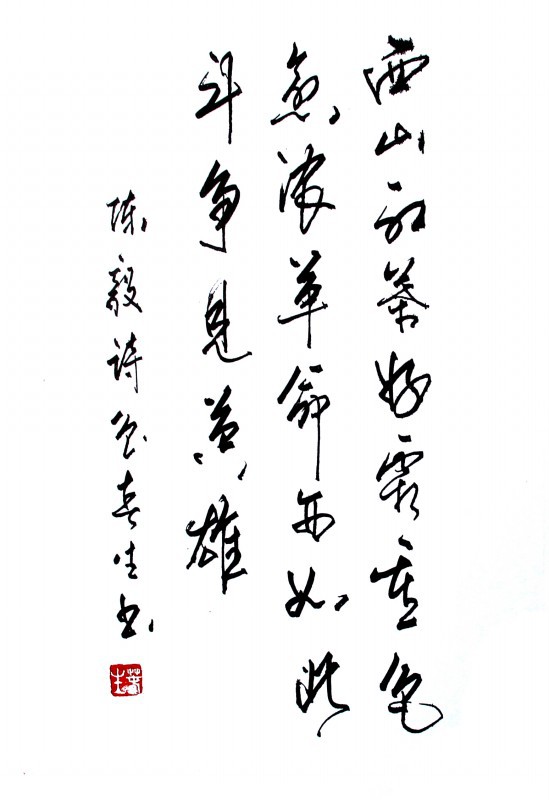 西山红葉好霜重色
愈浓革命亦如此
斗争見英雄
陈毅诗春生书